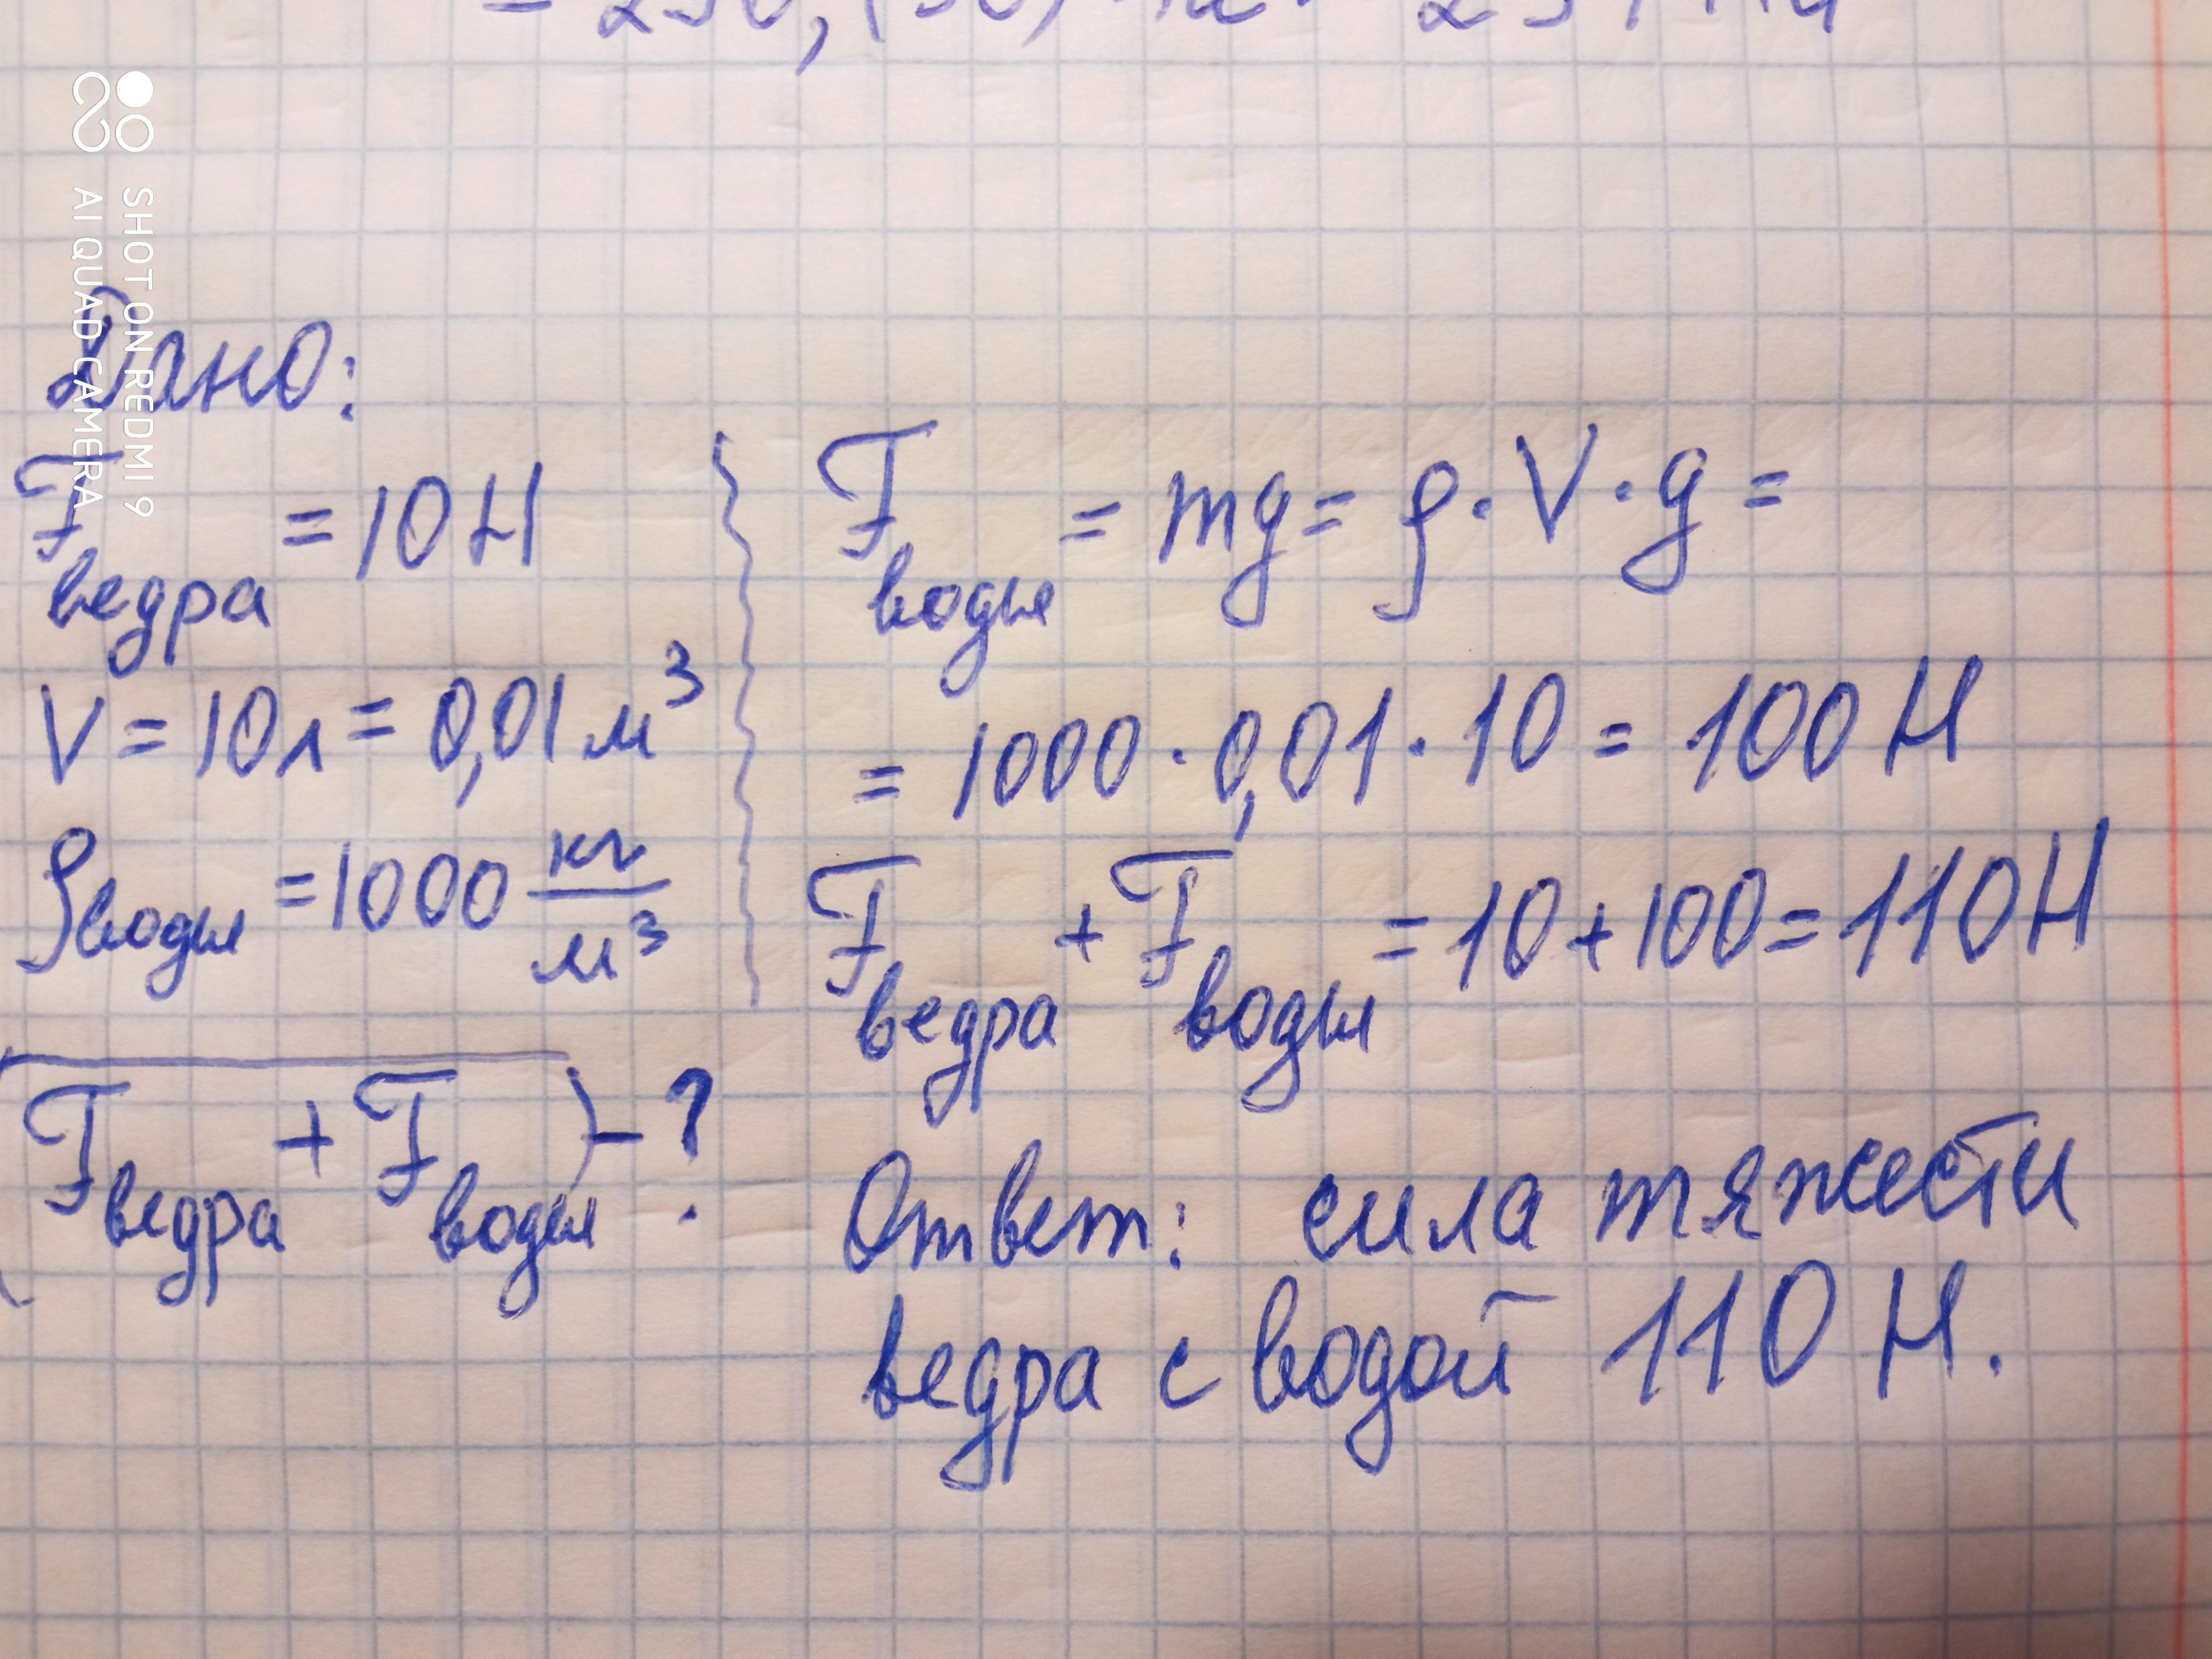 SHOT ON REDMI 9
AI QUAD CAMERA
Дано:
Fведра = 10 Н
V = 10 л = 0,01 м³
ρводы = 1000 кг/м³
(Fведра + Fводы) - ?
Fводы = mg = ρ · V · g =
= 1000 · 0,01 · 10 = 100 Н
Fведра + Fводы = 10 + 100 = 110 Н
Ответ: сила тяжести
ведра с водой 110 Н.